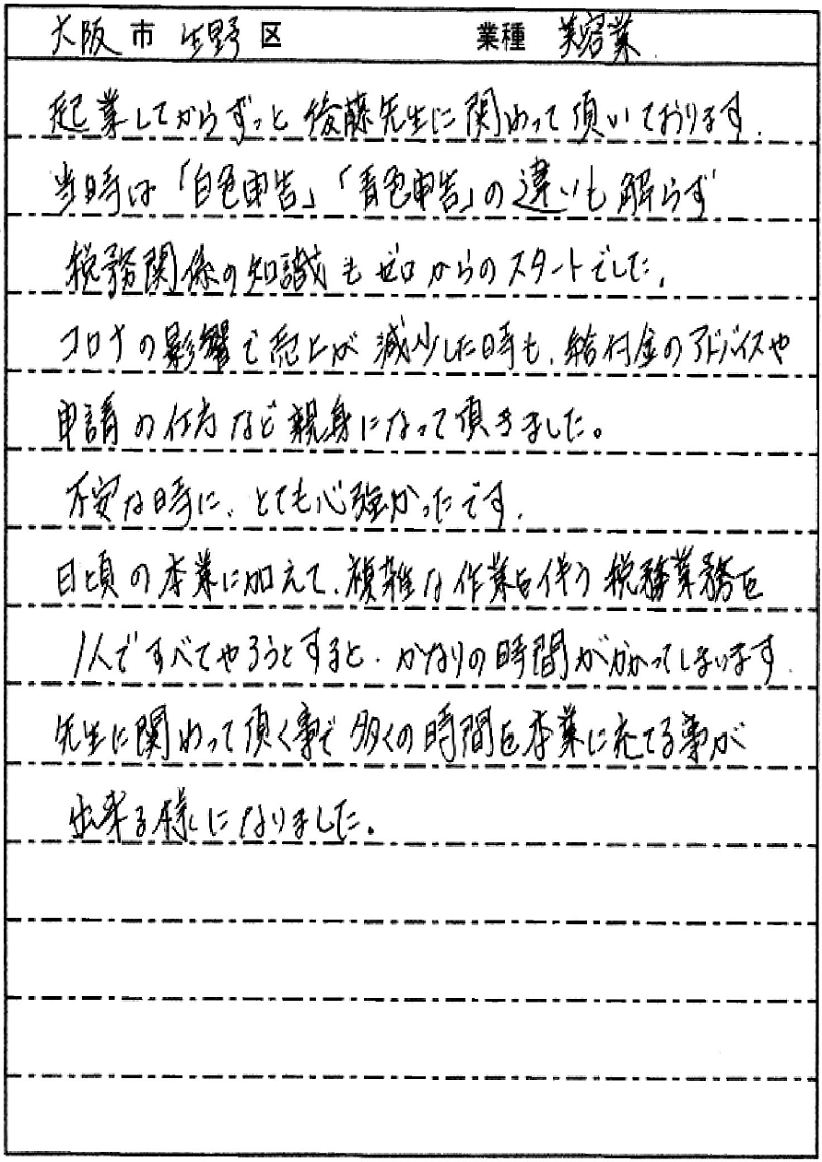 大阪市 生野区 業種 美容業
起業してからずっと後藤先生に関わって頂いております.
当時は「白色申告」「青色申告」の違いも解らず
税務関係の知識もゼロからのスタートでした.
コロナの影響で売上が減少した時も、給付金のアドバイスや
申請の仕方など親身になって頂きました。
不安な時に、とても心強かったです.
日頃の本業に加えて、複雑な作業を伴う税務業務を
1人ですべてやろうとすると、かなりの時間がかかってしまいます.
先生に関わって頂く事で多くの時間を本業に充てる事が
出来る様になりました。